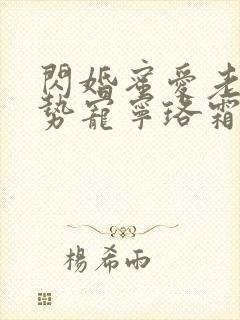 閃婚蜜愛老
勢寵寧珞霜
楊希雨